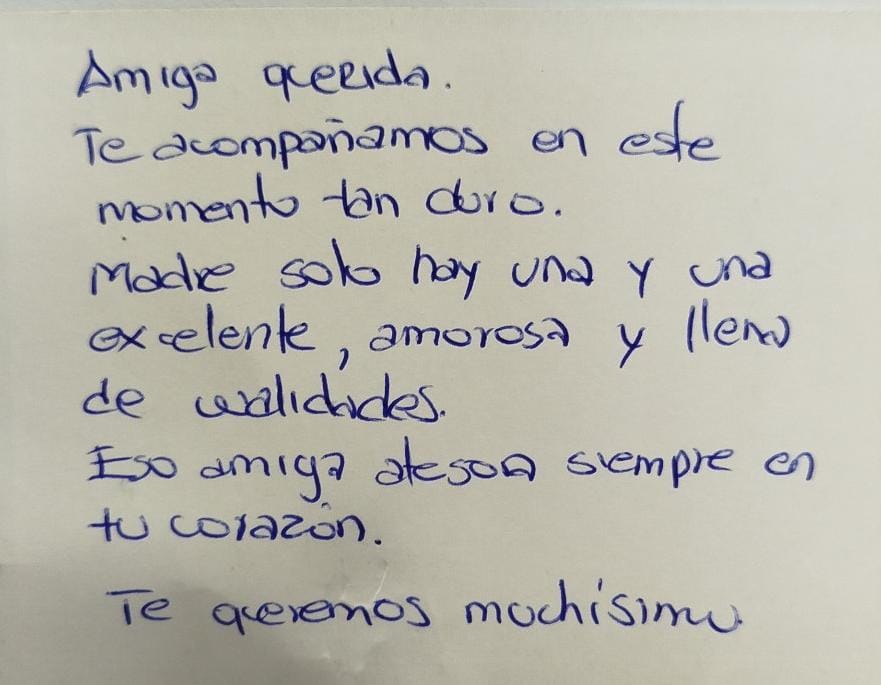 Amiga querida.
Te acompañamos en este
momento tan duro.
Madre solo hay una y una
excelente, amorosa y llena
de cualidades.
Eso amiga atesora siempre en
tu corazón.
Te queremos muchísimo